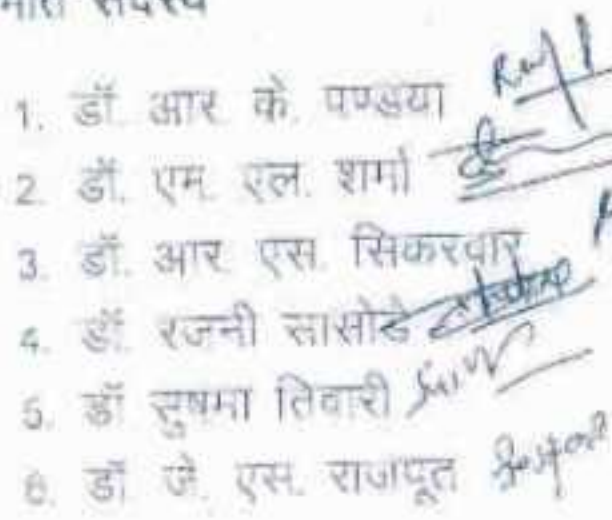 सदस्य
1. डॉ. आर. के. पण्डया
2. डॉ. एम. एल. शर्मा
3. डॉ. आर. एस. सिकरवार
4. डॉ. रजनी सासोडे
5. डॉ सुषमा तिवारी
6. डॉ. जे. एस. राजपूत